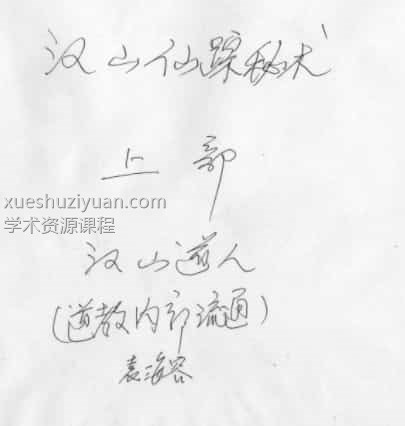 汉山仙踪秘术
上部
xueshuziyuan.com
学术资源课程
汉山道人
(道教内部流通)
袁海容